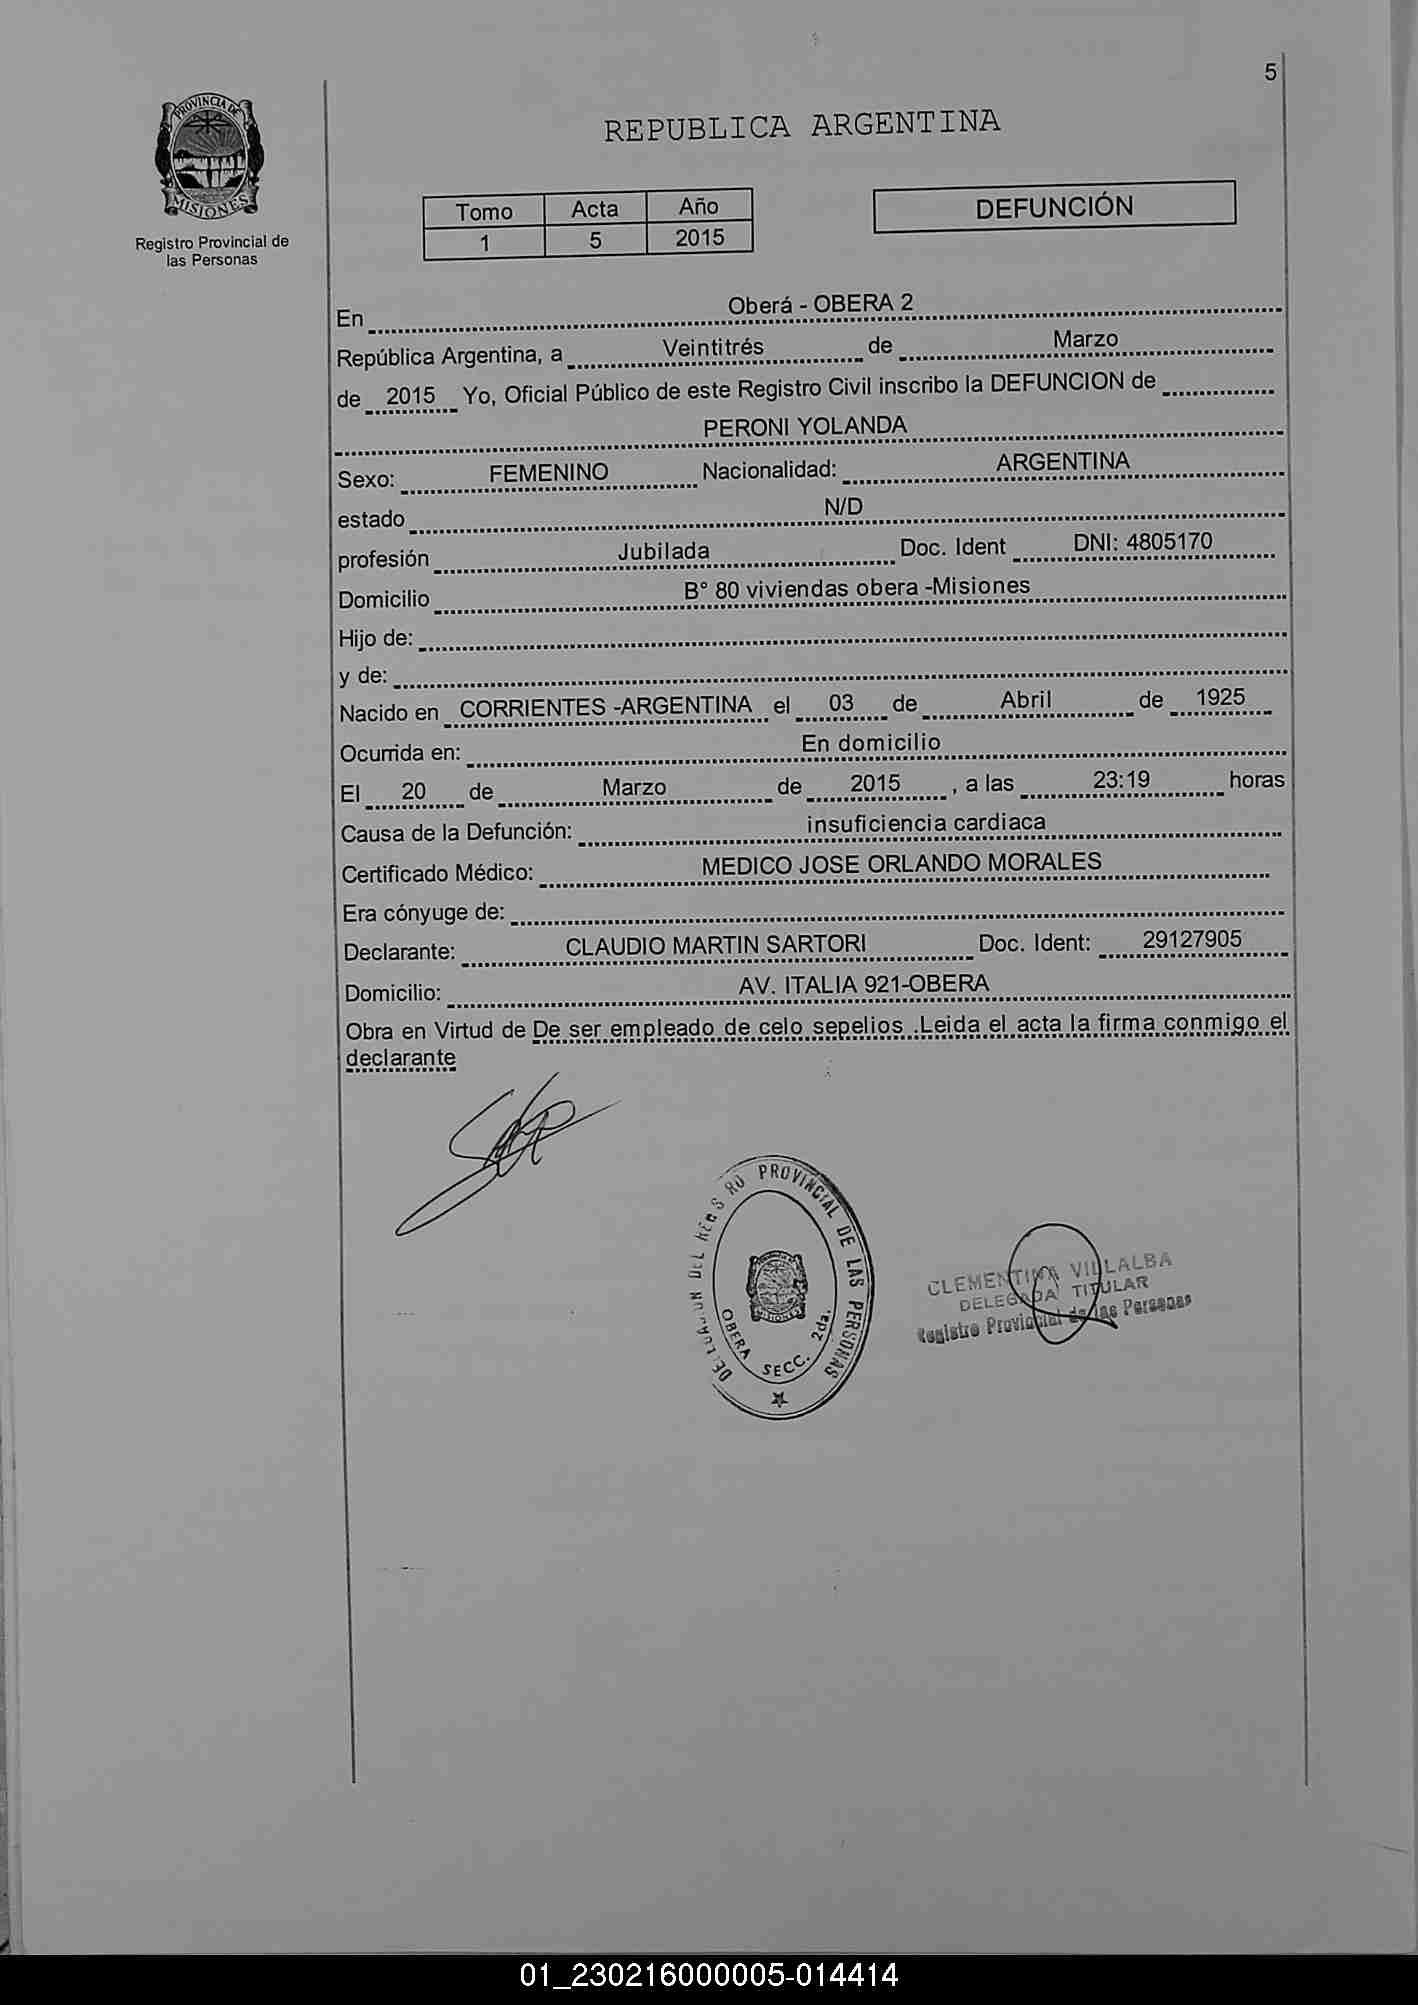 5
PROVINCIA DE
MISIONES
Registro Provincial de
las Personas
REPUBLICA ARGENTINA
Tomo Acta Año
1 5 2015
DEFUNCIÓN
En Oberá - OBERA 2
República Argentina, a Veintitrés de Marzo
de 2015 Yo, Oficial Público de este Registro Civil inscribo la DEFUNCION de
PERONI YOLANDA
Sexo: FEMENINO Nacionalidad: ARGENTINA
estado N/D
profesión Jubilada Doc. Ident DNI: 4805170
Domicilio B° 80 viviendas obera -Misiones
Hijo de:
y de:
Nacido en CORRIENTES -ARGENTINA el 03 de Abril de 1925
Ocurrida en: En domicilio
El 20 de Marzo de 2015 , a las 23:19 horas
Causa de la Defunción: insuficiencia cardiaca
Certificado Médico: MEDICO JOSE ORLANDO MORALES
Era cónyuge de:
Declarante: CLAUDIO MARTIN SARTORI Doc. Ident: 29127905
Domicilio: AV. ITALIA 921-OBERA
Obra en Virtud de De ser empleado de celo sepelios .Leida el acta la firma conmigo el
declarante
PROVINCIAL DE LAS PERSONAS
OBERA SECC. 2da.
CLEMENTINA VILLALBA
DELEGADA TITULAR
Registro Provincial de las Personas
01_230216000005-014414